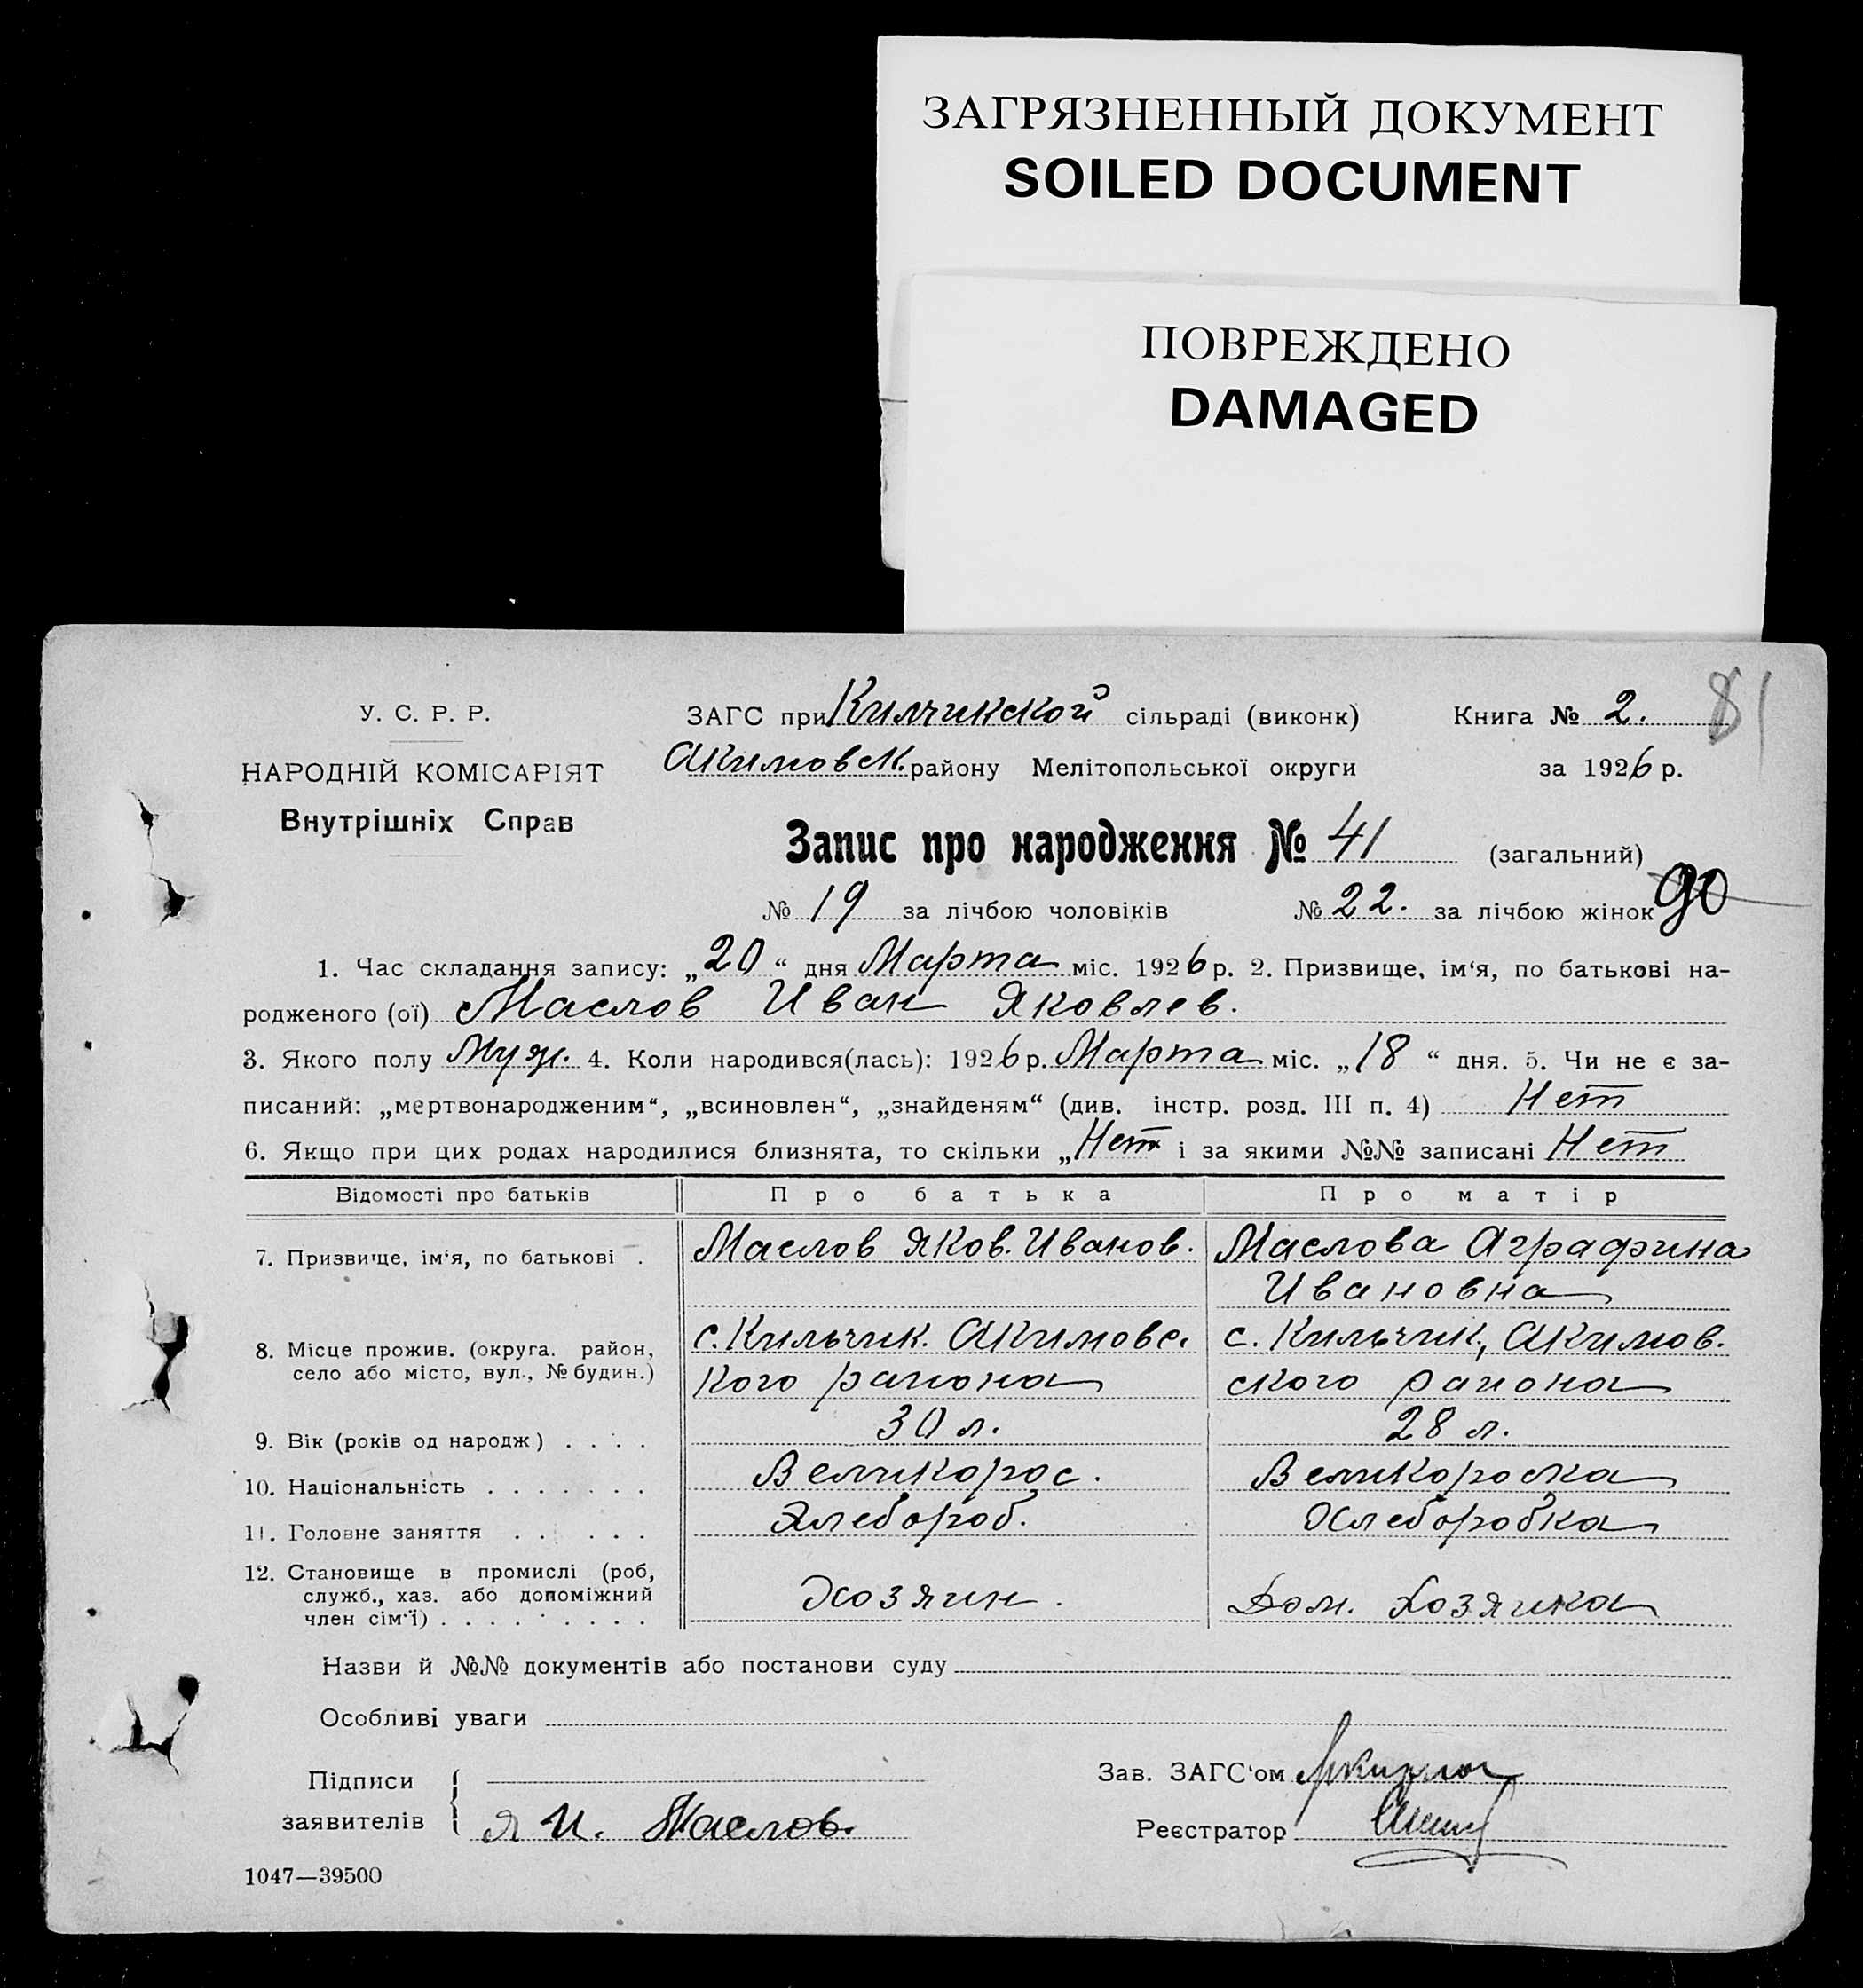 ЗАГРЯЗНЕННЫЙ ДОКУМЕНТ
SOILED DOCUMENT
ПОВРЕЖДЕНО
DAMAGED
81
У. С. Р. Р.
НАРОДНІЙ КОМІСАРІЯТ
Внутрішніх Справ
ЗАГС при Килчикской сільраді (виконк) Книга № 2.
Акимовск. району Мелітопольської округи за 1926 р.
Запис про народження № 41 (загальний)
90
№ 19 за лічбою чоловіків № 22. за лічбою жінок
1. Час складання запису: „20“ дня Марта міс. 1926 р. 2. Призвище, ім‘я, по батькові на-
родженого (ої) Маслов Иван Яковлев.
3. Якого полу Муж. 4. Коли народився(лась): 1926 р. Марта міс. „18“ дня. 5. Чи не є за-
писаний: „мертвонародженим“, „всиновлен“, „знайденям“ (див. інстр. розд. III п. 4) Нет
6. Якщо при цих родах народилися близнята, то скільки „Нет і за якими №№ записані Нет
Відомості про батьків Про батька Про матір
7. Призвище, ім‘я, по батькові . Маслов Яков. Иванов. Маслова Аграфина
Ивановна
8. Місце прожив. (округа. район, село або місто, вул., № будин.) с. Кильчик. Акимовс. с. Кильчик, Акимов.
кого района ского района
9. Вік (років од народж) . . . . 30 л. 28 л.
10. Національність . . . . . . . Великорос. Великороска
11. Головне заняття . . . . . Хлебороб. Хлеборобка
12. Становище в промислі (роб,
служб., хаз. або допоміжний
член сім‘ї) . . . . . . . . . Хозяин. Дом. Хозяика
Назви й №№ документів або постанови суду
Особливі уваги
Підписи
заявителів Я И. Маслов.
Зав. ЗАГС‘ом
Реєстратор
1047—39500